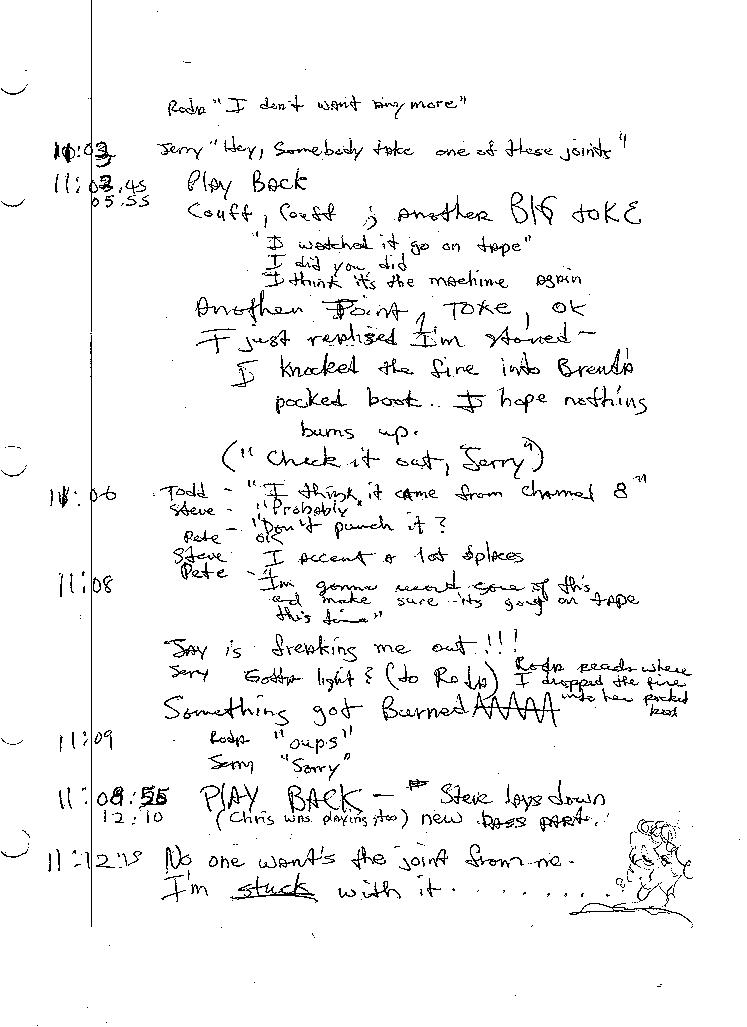 Roda "I don't want any more"
11:03 Jerry "Hey, Somebody take one of these joints"
11:03.45 PLAY BACK
05.55 Couff, Couff, another BIG TOKE
"I watched it go on tape"
I did you did
I think it's the machine again
Another Point, TOKE, OK
I just realised I'm stoned -
I knocked the fire into Brenda's
pocked book.. I hope nothing
burns up.
("Check it out, Jerry")
11:06 Todd - "I think it came from channel 8"
Steve - "Probably"
Pete - "Don't punch it?
OK
Steve I accent a lot places
11:08 Pete - "I'm gonna some of this
and make sure its going on tape
this time"
JAY is freaking me out!!!
Jerry Gotta light? (to Roda) Roda reads where
I dropped the fire
into her pocked
book
Something got Burned
11:09 Roda "oups"
Jerry "Sorry"
11:08:55 PLAY BACK - Steve lays down
12:10 (Chris was playing too) new BASS PART.
11:12:15 No one want's the joint from me.
I'm stuck with it.........